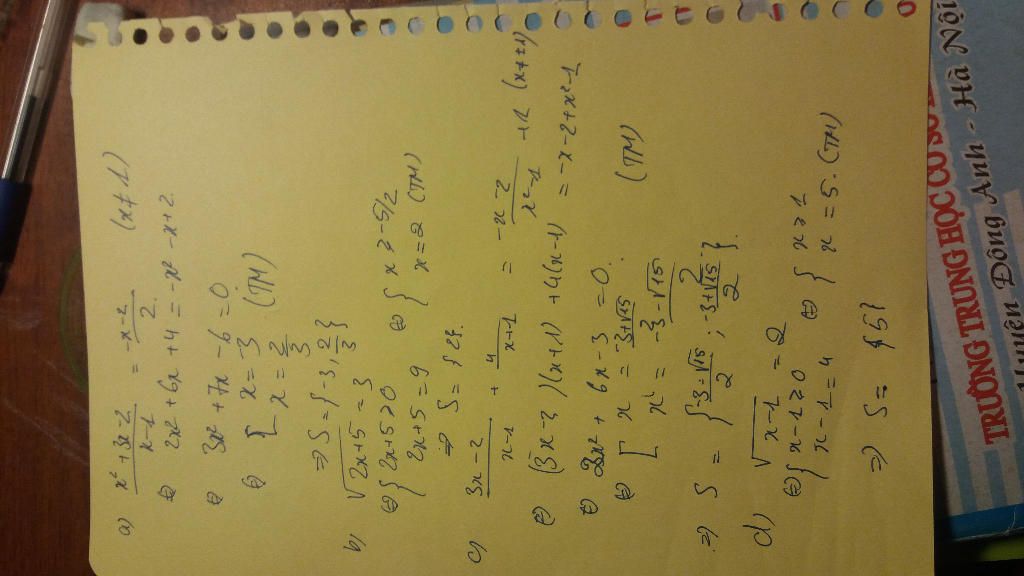 a) x² + 3x - 2 / x - 1 = -x - 2 / 2 (x ≠ 1)
⇔ 2x² + 6x + 4 = -x² - x + 2
⇔ 3x² + 7x - 6 = 0
⇔ [ x = -3 (TM)
x = 2/3
⇒ S = { -3, 2/3 }
b) √2x+5 = 3
⇔ { 2x + 5 ≥ 0 ⇔ { x ≥ -5/2
2x + 5 = 9 x = 2 (TM)
⇒ S = { 2 }.
c) 3x - 2 / x - 1 + 4 / x + 1 = -x - 2 / x² - 1 + 1 (x ≠ ±1)
⇔ (3x - 2)(x + 1) + 4(x - 1) = -x - 2 + x² - 1
⇔ 2x² + 6x - 3 = 0.
⇔ [ x = -3 + √15 / 2
x = -3 - √15 / 2 (TM)
⇒ S = { -3 + √15 / 2 ; -3 + √15 / 2 }.
d) √x-1 = 2
⇔ { x - 1 ≥ 0 ⇔ { x ≥ 1
x - 1 = 4 x = 5. (TM)
⇒ S = { 5 }
TRƯỜNG TRUNG HỌC CƠ SỞ
Huyện Đông Anh - Hà Nội